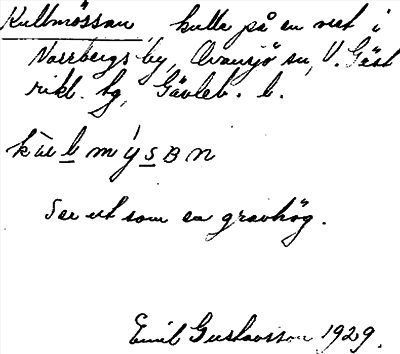 Kullmössan, kulle på en rest i
Norrbergs by, Ovansjö sn, V. Gäst
rikl. tg, Gävleb. l.
Ser ut som en gravhög.
Emil Gustavsson 1929.